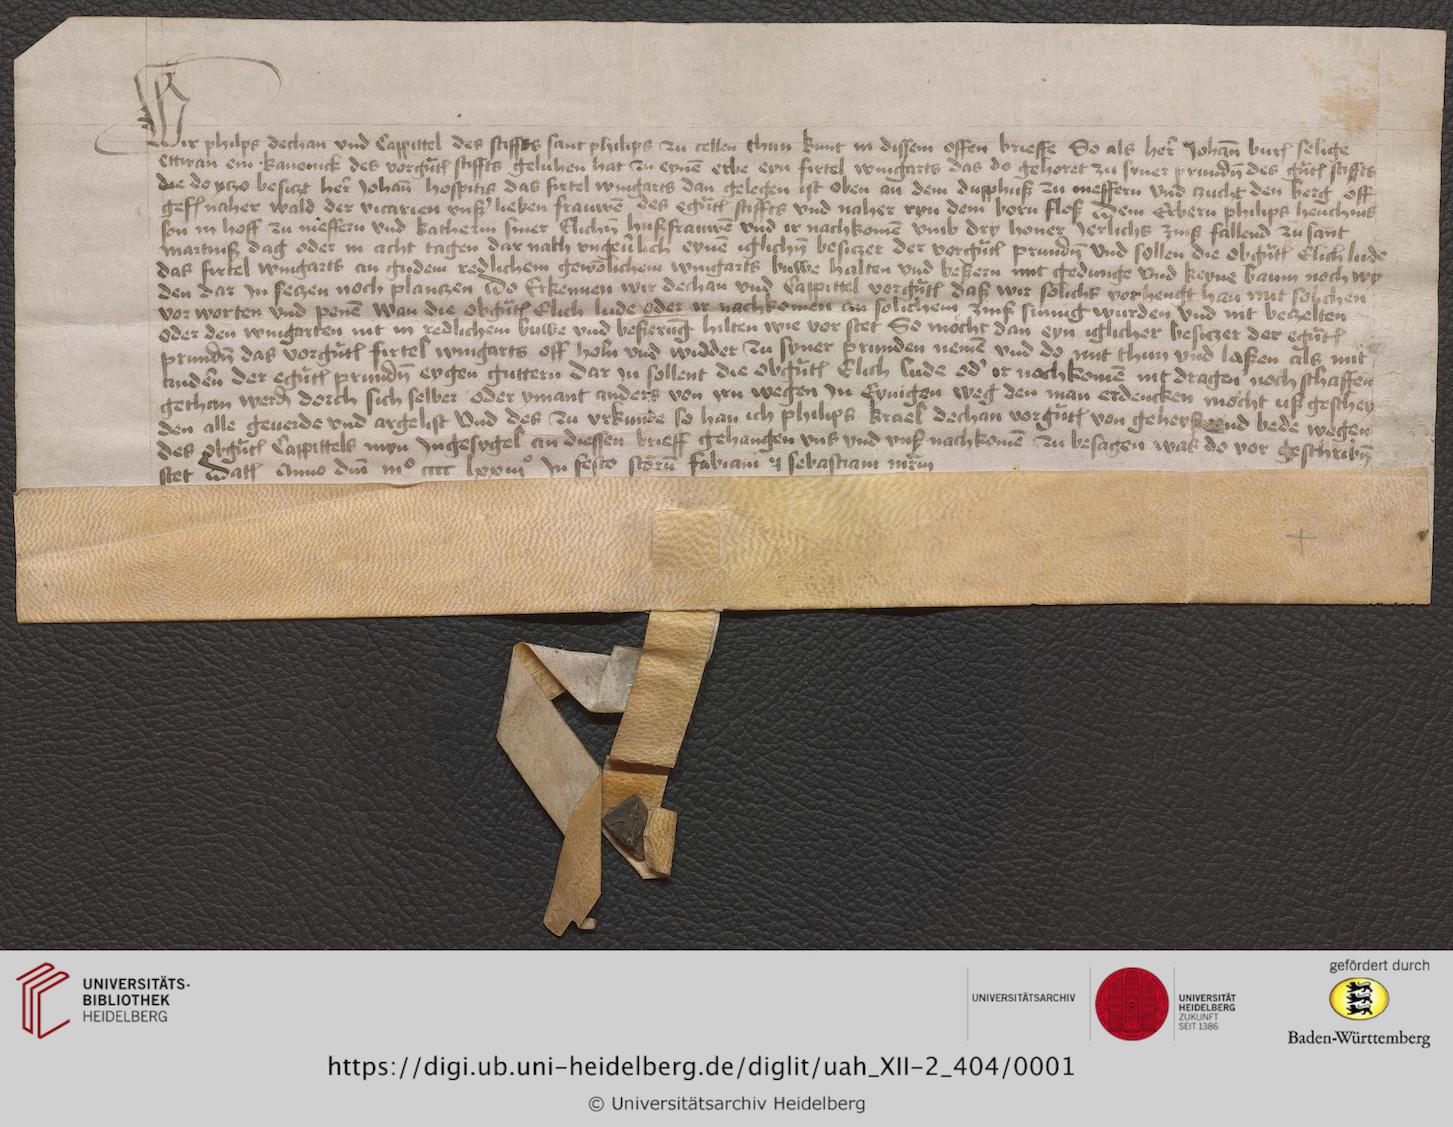 Wir philps dechan vnd Cappittel des stiffts sant philips zu cellen thun kunt in dussem offen brieffe So als her Johan burß selige
ettwan ein kanonick des vorgutß stiffts geluhen hat zu eynē erbe eyn firtel wingarts das do gehoret zu syner prundn des gutß stiffts
die do yczo besiczt her Johan hospitis das firtel wingarts dan gelegen ist oben an dem zu meffern vnd zucht den berg off
geff naher wald der vicarien vnß lieben frauwen des egutß stiffts vnd naher ryn dem born floß Dem Erbern philips henchins
son in hoff zu meffern vnd katherin siner Elichn hußfrauwen vnd ir nachkomē vmb dry honer Jerlichs zinß fallend zu sant
martinß dag oder in acht tagen dar nach vngeuerlich eynē iglichn besiczer der vorgutß prundn Vnd sollen die obgutß Elich lude
das firtel wingarts in gudem redlichem gewonlichem wingarts buwe halten vnd beßern mit gedunge vnd keyne baum noch wy
den dar in seczen noch planczen Wo Erkennen wir dechan vnd Cappittel vorgutß daß wir solichs verhengt han mit solichen
vor worten vnd penē Wan die obgutß Elich lude oder ir nachkomen an solichem zinß sumig wurden vnd nit beczelten
oder den wingarten nit in redlichem buwe vnd beßerung hilten wie vor stet So mocht dan eyn iglicher besiczer der egutß
prundn das vorgutß firtel wingarts off holn vnd widder zu syner prunden nemē vnd do mit thun vnd laßen als mit
andern der egutß prundn eygen guttern dar in sollent die obgutß Elich lude od ir nachkomē nit dragen noch schaffen
gethan werdn dorch sich selber oder ymant anders von yrn wegen In Eynigen weg den man erdencken mocht vß geschey
den alle geuerde vnd argelist Vnd des zu vrkunde so han ich philips krael dechan vorgutß von geheyß vnd bede wegen
des obgutß Cappittels myn Ingesygel an diessen brieff gehangen vns vnd vnß nachkomē zu besagen was do vor geschribn
stet Datß Anno dm mº cccc lxxiiiº In festo scorū fabiani et sebastiani mrm
UNIVERSITÄTS-
BIBLIOTHEK
HEIDELBERG
UNIVERSITÄTSARCHIV
UNIVERSITÄT
HEIDELBERG
ZUKUNFT
SEIT 1386
gefördert durch
Baden-Württemberg
https://digi.ub.uni-heidelberg.de/diglit/uah_XII-2_404/0001
© Universitätsarchiv Heidelberg